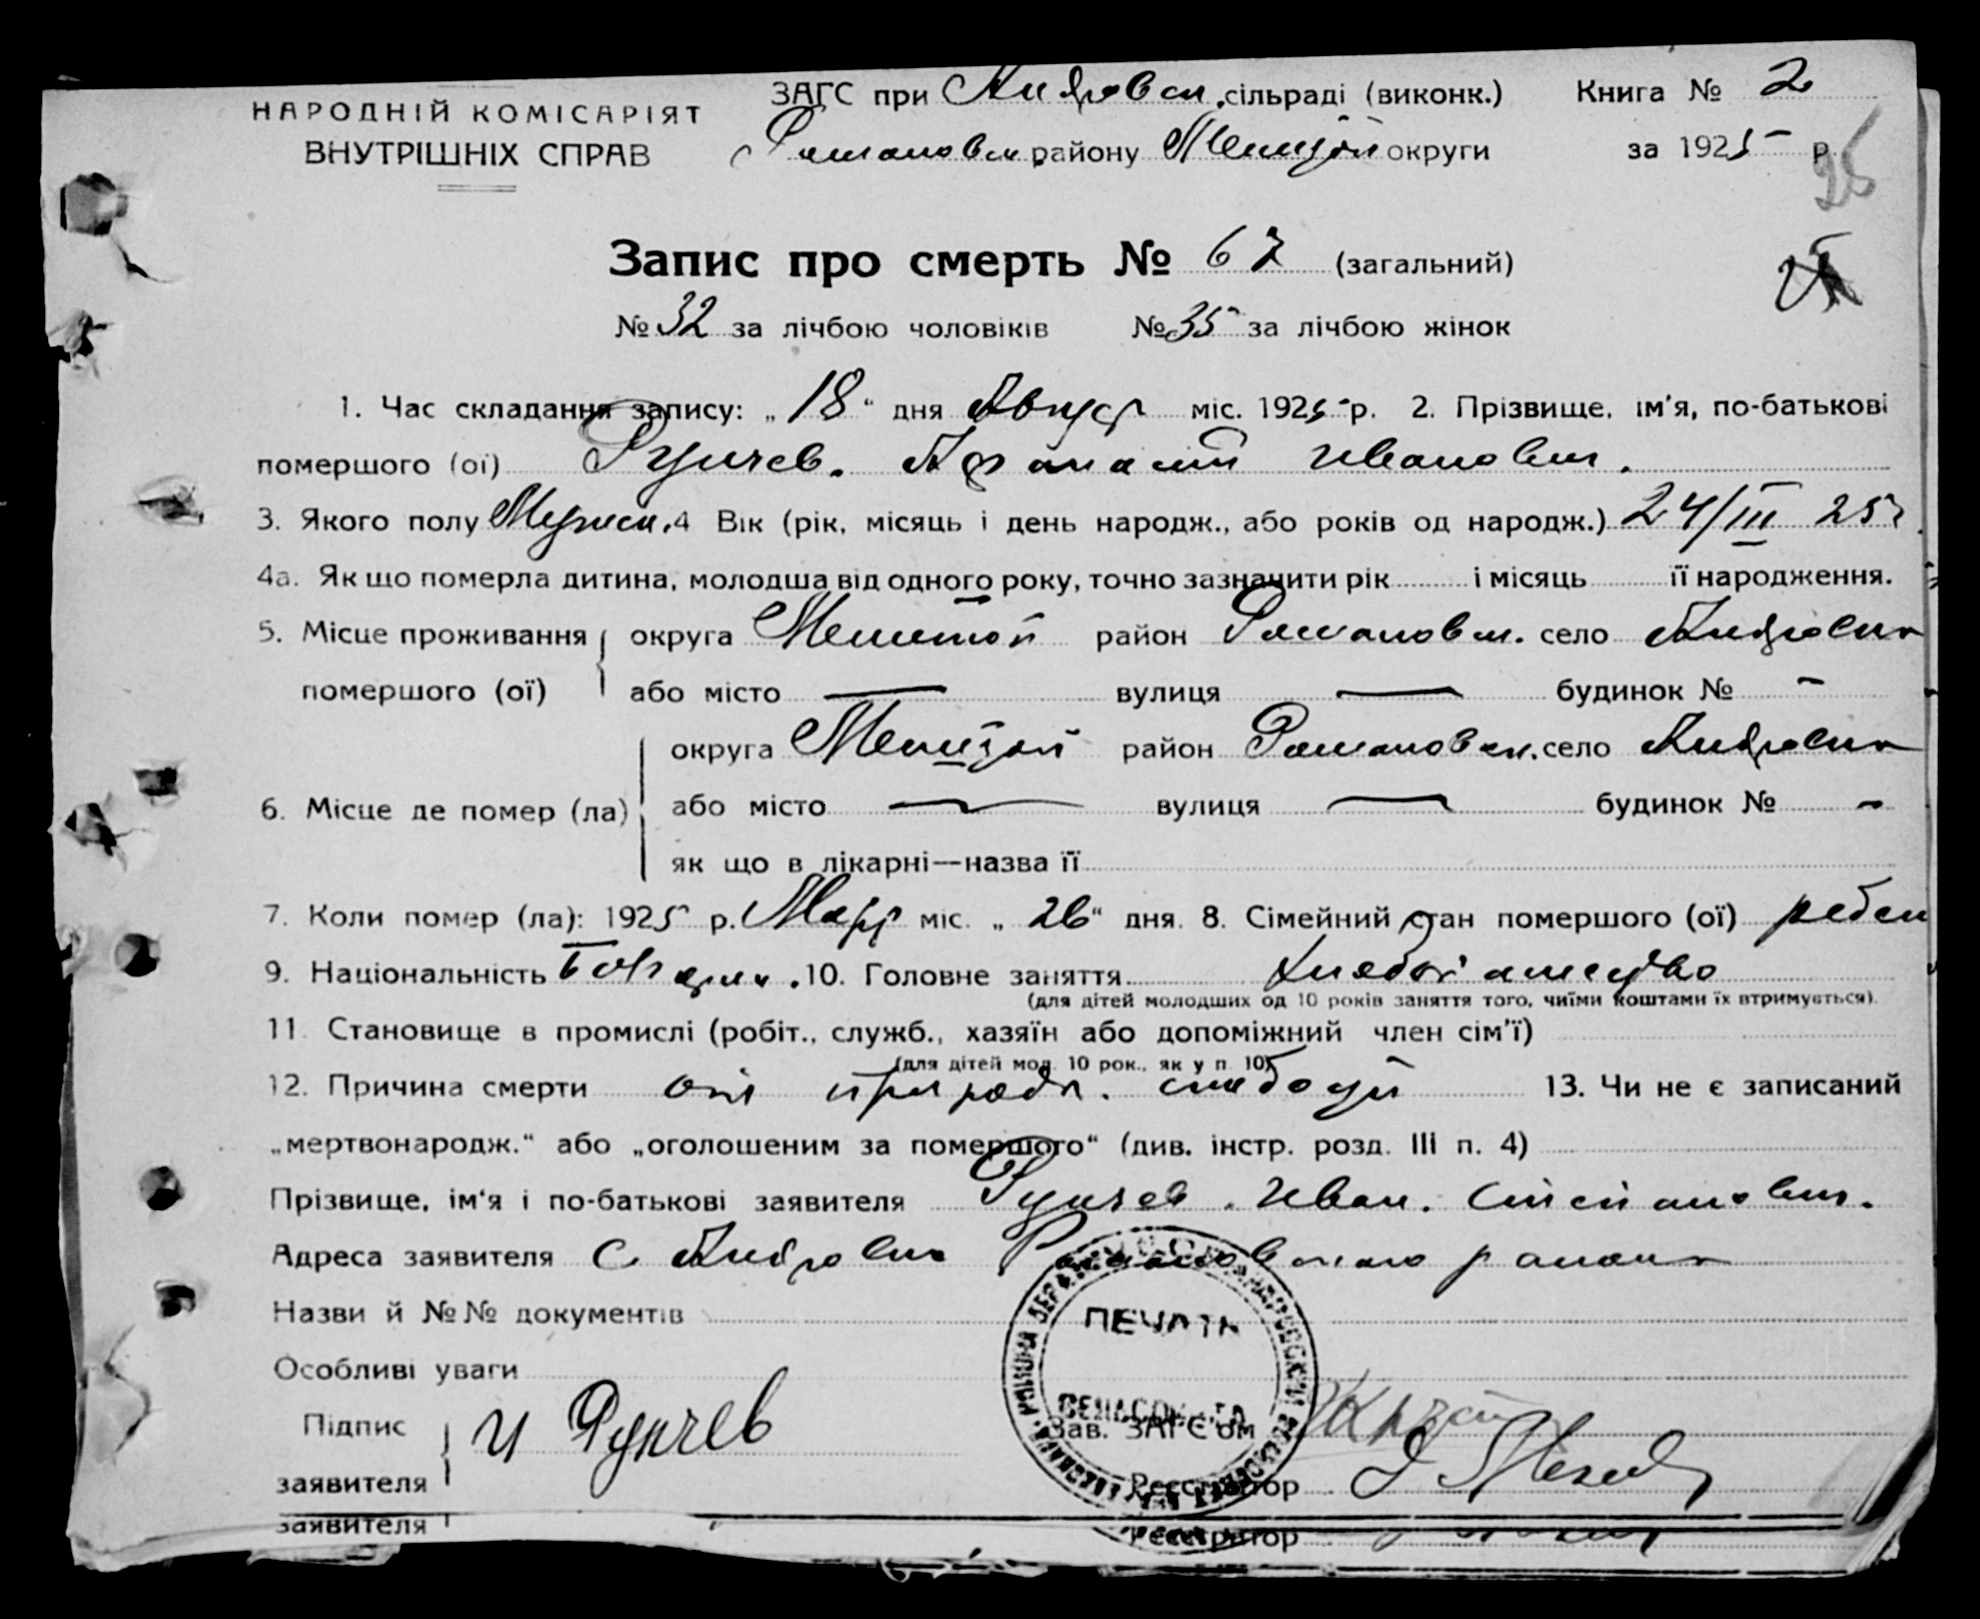 НАРОДНІЙ КОМІСАРІЯТ
ВНУТРІШНІХ СПРАВ
ЗАГС при Андровск. сільраді (виконк.) Книга № 2
Романовск району округи за 1925 р.
25
Запис про смерть № 67 (загальний)
№ 32 за лічбою чоловіків № 35 за лічбою жінок
1. Час складання запису: „18“ дня Август міс. 1925 р. 2. Прізвище, ім'я, по-батькові
помершого (ої) Рупчев. Афанасий Иванович.
3. Якого полу Мужеск. 4 Вік (рік, місяць і день народж., або років од народж.) 24/III 25 г.
4а. Як що померла дитина, молодша від одного року, точно зазначити рік і місяць її народження.
5. Місце проживання округа Мелитоп район Романовск. село Андровка
помершого (ої) або місто — вулиця — будинок № –
округа Мелитоп район Романовск. село Андровка
6. Місце де помер (ла) або місто — вулиця — будинок № –
як що в лікарні—назва її
7. Коли помер (ла): 1925 р. Март міс. „26“ дня. 8. Сімейний стан помершого (ої) ребен
9. Національність Болгарин. 10. Головне заняття Хлебопашество
(для дітей молодших од 10 років заняття того, чиїми коштами їх втримується).
11. Становище в промислі (робіт., служб., хазяїн або допоміжний член сім'ї)
(для дітей мол. 10 рок., як у п. 10)
12. Причина смерти от слабости 13. Чи не є записаний
„мертвонародж.“ або „оголошеним за помершого“ (див. інстр. розд. III п. 4)
Прізвище, ім'я і по-батькові заявителя Рупчев. Иван. Степанович.
Адреса заявителя С Андровка Романовского района
Назви й №№ документів
Особливі уваги
ПЕЧАТЬ
Підпис
заявителя
И Рупчев
Зав. ЗАГС'ом
Реєстратор
заявителя Реєстратор